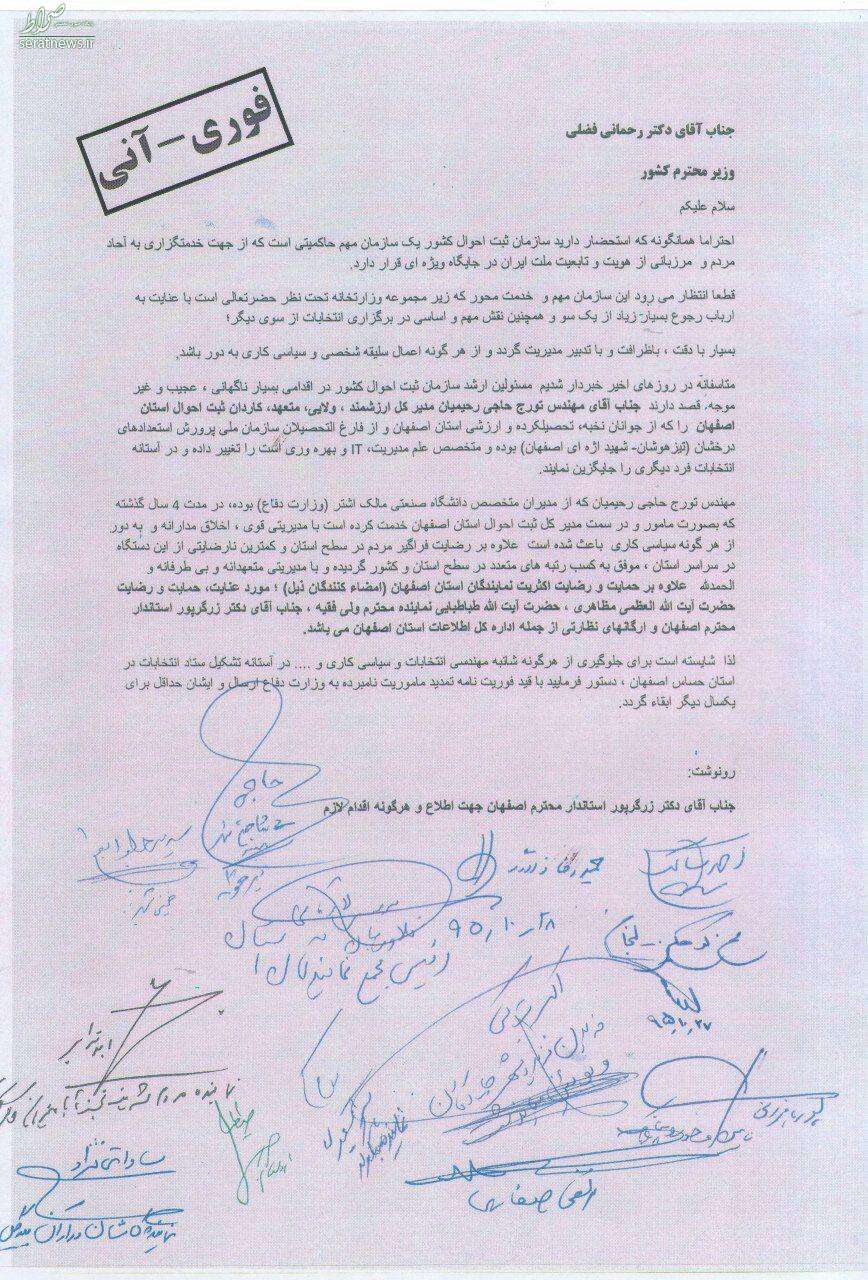 صراط
seratnews.ir
فوری - آنی
جناب آقای دکتر رحمانی فضلی
وزیر محترم کشور
سلام علیکم
احتراما همانگونه که استحضار دارید سازمان ثبت احوال کشور یک سازمان مهم حاکمیتی است که از جهت خدمتگزاری به آحاد
مردم و مرزبانی از هویت و تابعیت ملت ایران در جایگاه ویژه ای قرار دارد.
قطعا انتظار می رود این سازمان مهم و خدمت محور که زیر مجموعه وزارتخانه تحت نظر حضرتعالی است با عنایت به
ارباب رجوع بسیار زیاد از یک سو و همچنین نقش مهم و اساسی در برگزاری انتخابات از سوی دیگر؛
بسیار با دقت ، باظرافت و با تدبیر مدیریت گردد و از هر گونه اعمال سلیقه شخصی و سیاسی کاری به دور باشد.
متاسفانه در روزهای اخیر خبردار شدیم مسئولین ارشد سازمان ثبت احوال کشور در اقدامی بسیار ناگهانی ، عجیب و غیر
موجه. قصد دارند جناب آقای مهندس تورج حاجی رحیمیان مدیر کل ارزشمند ، ولایی، متعهد، کاردان ثبت احوال استان
اصفهان را که از جوانان نخبه، تحصیلکرده و ارزشی استان اصفهان و از فارغ التحصیلان سازمان ملی پرورش استعدادهای
درخشان (تیزهوشان- شهید اژه ای اصفهان) بوده و متخصص علم مدیریت، IT و بهره وری است را تغییر داده و در آستانه
انتخابات فرد دیگری را جایگزین نمایند.
مهندس تورج حاجی رحیمیان که از مدیران متخصص دانشگاه صنعتی مالک اشتر (وزارت دفاع) بوده، در مدت 4 سال گذشته
که بصورت مامور و در سمت مدیر کل ثبت احوال استان اصفهان خدمت کرده است با مدیریتی قوی ، اخلاق مدارانه و به دور
از هر گونه سیاسی کاری باعث شده است علاوه بر رضایت فراگیر مردم در سطح استان و کمترین نارضایتی از این دستگاه
در سراسر استان ، موفق به کسب رتبه های متعدد در سطح استان و کشور گردیده و با مدیریتی متعهدانه و بی طرفانه و
الحمدلله علاوه بر حمایت و رضایت اکثریت نمایندگان استان اصفهان (امضاء کنندگان ذیل) ؛ مورد عنایت، حمایت و رضایت
حضرت آیت الله العظمی مظاهری ، حضرت آیت الله طباطبایی نماینده محترم ولی فقیه ، جناب آقای دکتر زرگرپور استاندار
محترم اصفهان و ارگانهای نظارتی از جمله اداره کل اطلاعات استان اصفهان می باشد.
لذا شایسته است برای جلوگیری از هرگونه شائبه مهندسی انتخابات و سیاسی کاری و .... در آستانه تشکیل ستاد انتخابات در
استان حساس اصفهان ، دستور فرمایید با قید فوریت نامه تمدید ماموریت نامبرده به وزارت دفاع ارسال و ایشان حداقل برای
یکسال دیگر ابقاء گردد.
رونوشت:
جناب آقای دکتر زرگرپور استاندار محترم اصفهان جهت اطلاع و هرگونه اقدام لازم
حاجی
احمد سالک
حمیدرضا فولادگر
خمینی شهر
رئیس مجمع نمایندگان
اکبر ترکی
ابوترابی
ساداتی نژاد